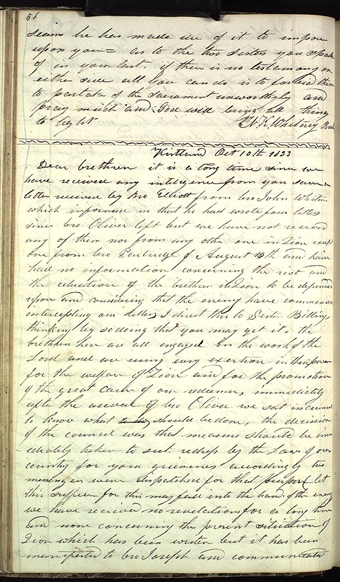 56
seam he has made use of it to impose
upon you = as to the two sisters you speak
of in your last. if there is no testamony on
either side all you can do is to forbid them
to partake of the sacrament unworthily and
pray much and God will bring all things
to light N K Whitney
Kirtland Oct 10th 1833
Dear brethren it is a long time since we
have received any intelligence from you save a
letter received by bro Elliott from bro John Whitmer
which informed us that he had wrote four letters
since bro Oliver left but we have not received
any of them nor from any other one in Zion except
one from bro Partridge of August 13th and have
had no information concerning the riot and
the situation of the brethren in Zion to be depended
upon and considering that the enemy have commenced
intercepting our letters I direct this to Sister Billings
thinking by so doing that you may get it. the
brethren here are all engaged in the work of the
Lord and are using every exertion in their power
for the welfare of Zion and for the promotion
of the great cause of our redeemer, immediately
after the arrival of bro Oliver we sat in council
to know what should be done, the decision
of the council was that measures should be im
ediately taken to seek redress by the Law of our
country for your grievances accordingly two
messengers were dispatched for that purpose let
this suffice for this may fall into the hand of the enemy
we have received no revelations for a long time
and none concerning the present situation of
Zion which has been written but it has been
manifested to bro Joseph and communicated